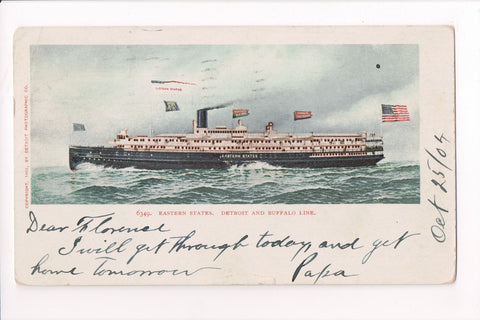 EASTERN STATES
EASTERN STATES
COPYRIGHT, 1902, BY DETROIT PHOTOGRAPHIC CO.
6349. EASTERN STATES. DETROIT AND BUFFALO LINE.
Oct 25/04
Dear Florence
I will get through today, and get
home tomorrow
Papa